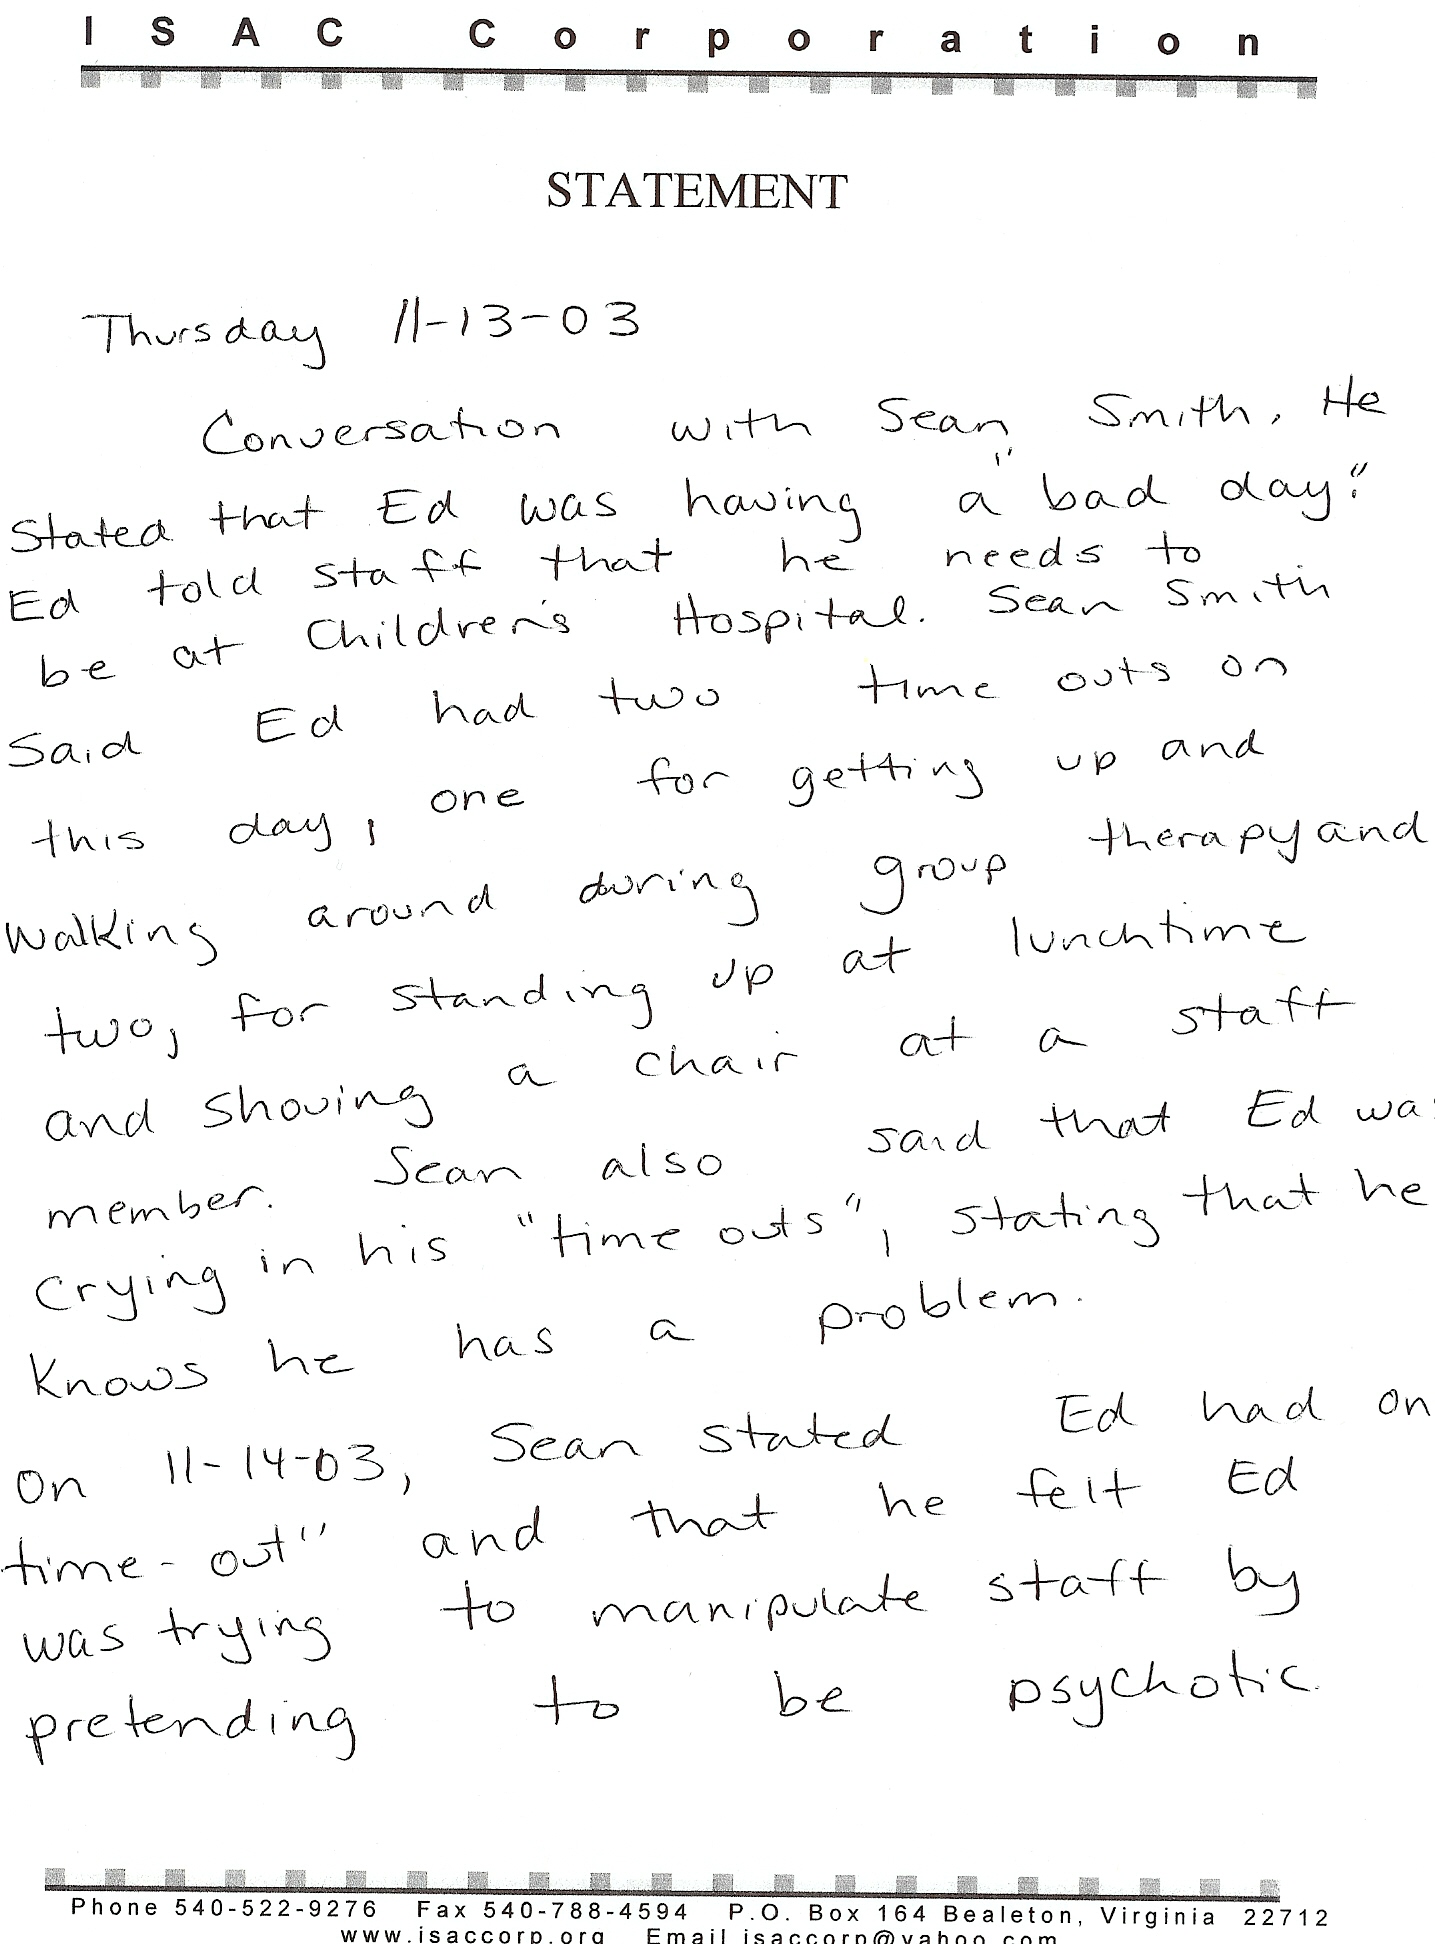 ISAC Corporation
STATEMENT
Thursday 11-13-03
Conversation with Sean Smith. He
Stated that Ed was having a "bad day."
Ed told staff that he needs to
be at Children's Hospital. Sean Smith
Said Ed had two time outs on
this day, one for getting up and
walking around during group therapy and
two, for standing up at lunchtime
and shoving a chair at a staff
member. Sean also said that Ed was
crying in his "time outs", stating that he
knows he has a problem.
On 11-14-03, Sean stated Ed had on
time-out" and that he felt Ed
was trying to manipulate staff by
pretending to be psychotic.
Phone 540-522-9276 Fax 540-788-4594 P.O. Box 164 Bealeton, Virginia 22712
www.isaccorp.org Email isaccorp@yahoo.com